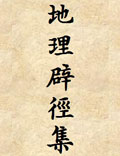 地理辟徑集